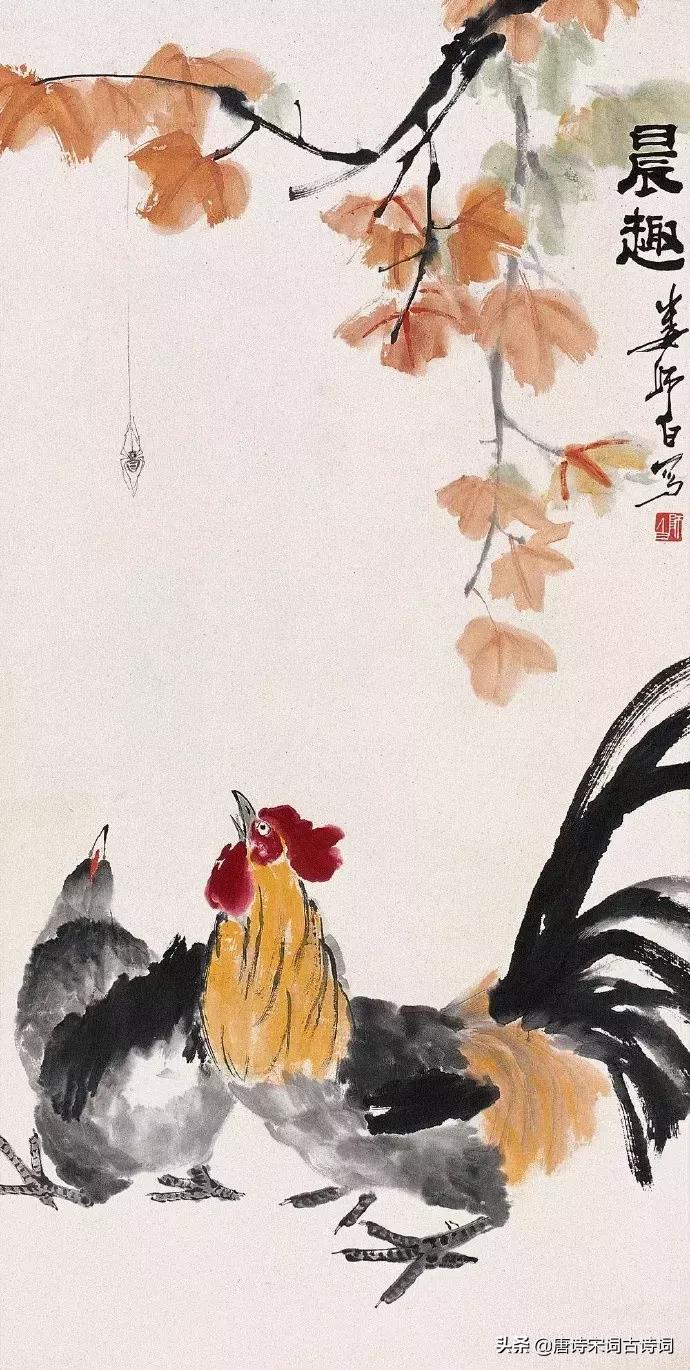 晨趣
娄师白写
头条 @唐诗宋词古诗词